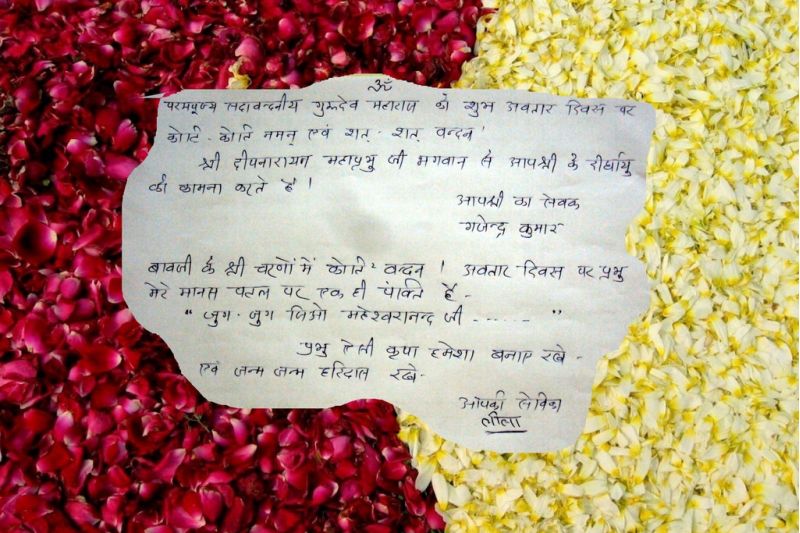 ॐ
परमपूज्य सदावन्दनीय गुरूदेव महाराज को शुभ अवतार दिवस पर
कोटि - कोटि नमन् एवं शत् - शत् वन्दन !
श्री दीपनारायण महाप्रभु जी भगवान से आपश्री के दीर्घायु
की कामना करते है !
आपश्री का सेवक
गजेन्द्र कुमार
बावजी के श्री चरणों में कोटि - वन्दन ! अवतार दिवस पर प्रभु
मेरे मानस पटल पर एक ही पंक्ति है -
" जुग - जुग जिओ महेश्वरानन्द जी ------- "
प्रभु ऐसी कृपा हमेशा बनाए रखे -
एवं जन्म जन्म हरिदास रखे -
आपकी सेविका
लीला